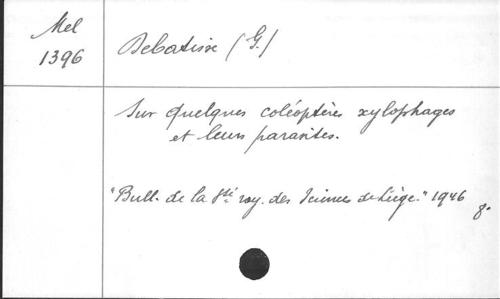 Mel
1396
Debatisse (G.)
Sur quelques coléoptères xylophages
et leurs parasites.
"Bull. de la Sté. roy. des Sciences de Liége." 1946
8.